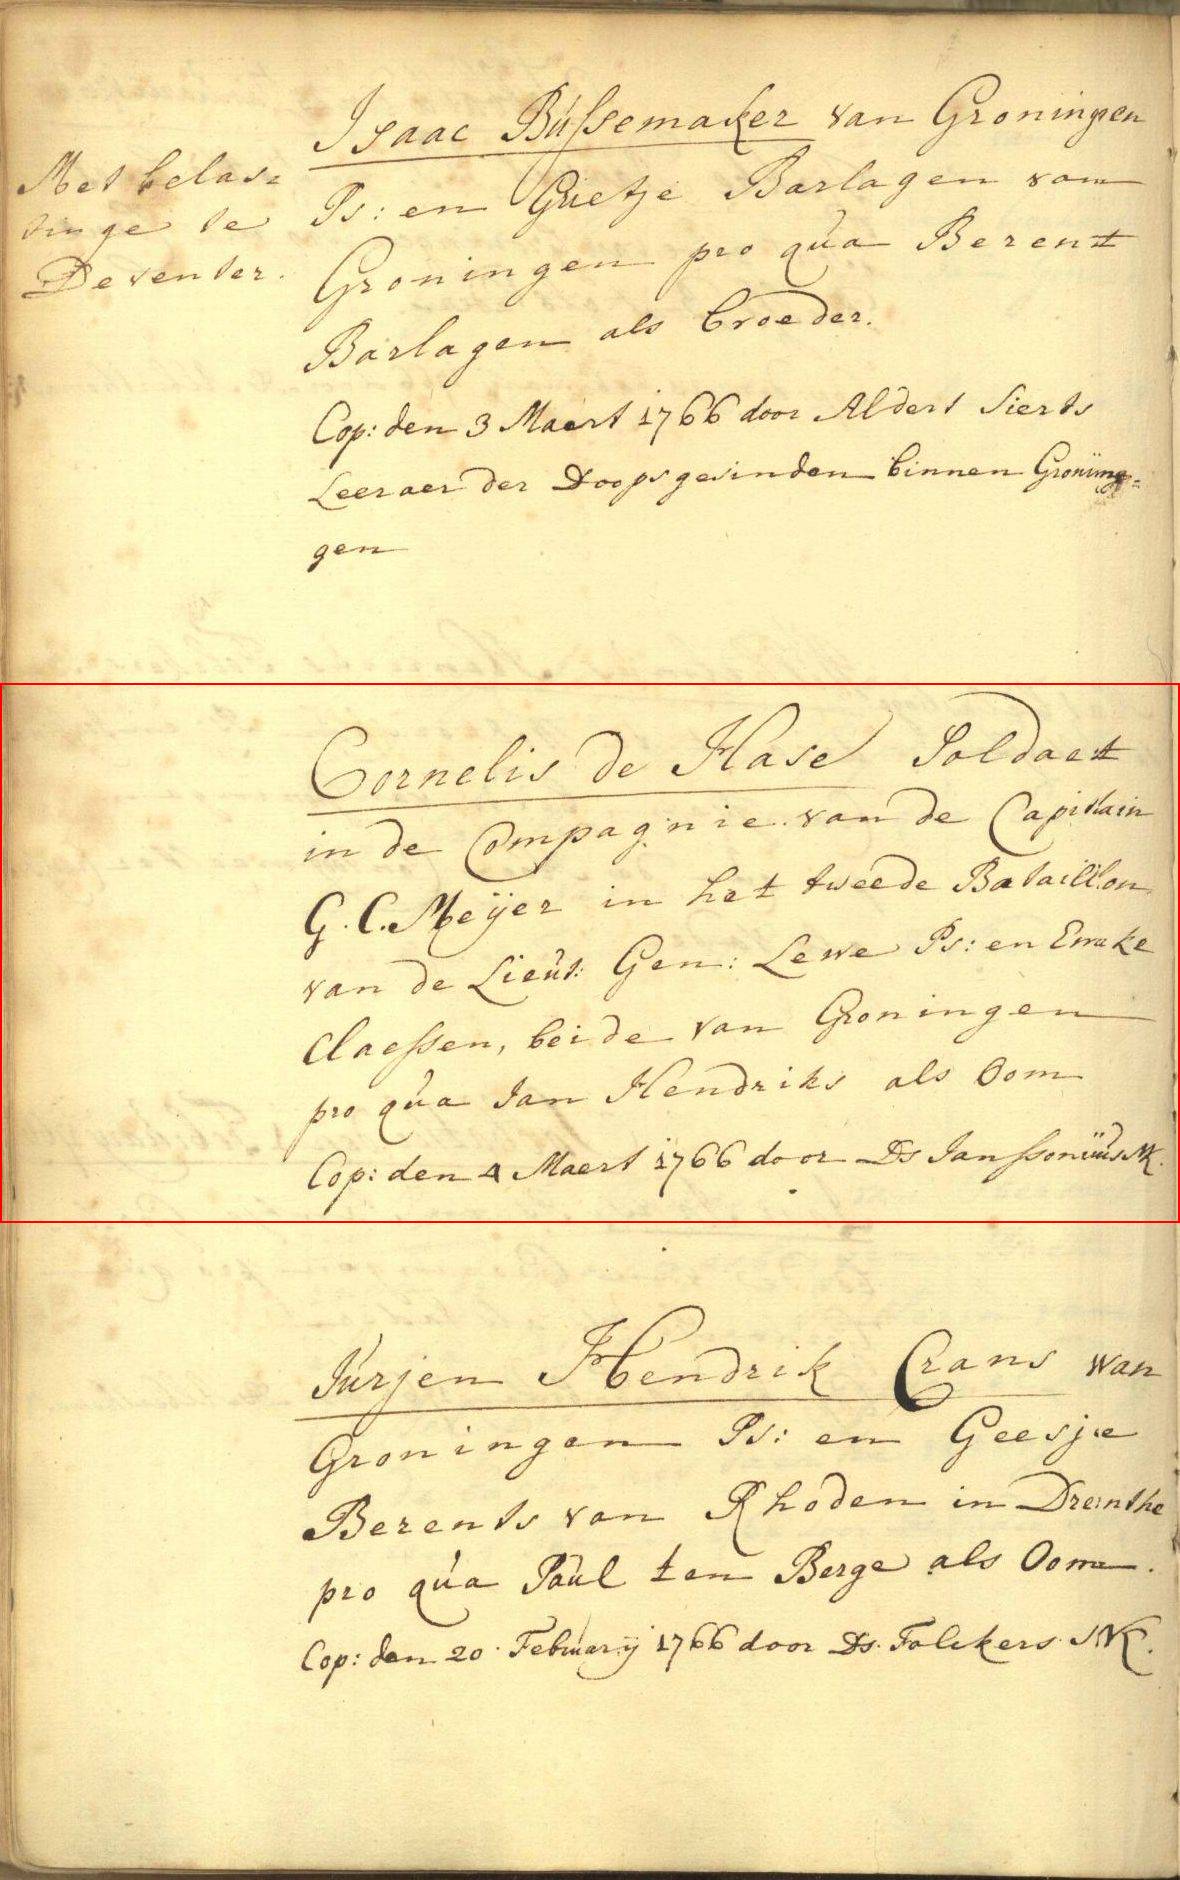 Isaac Bússemaker van Groningen
Met belas=
Ps: en Grietje Barlagen van
tinge te
Groningen pro qúa Berent
Deventer.
Barlagen als broeder.
Cop: den 3 Maert 1766 door Aldert Sierts
Leeraer der Doopsgesinden binnen Groning=
gen
Cornelis de Hase Soldaet
in de Compagnie van de Capitain
G. C. Meijer in het tweede Bataillon
van de Lieut: Gen: Lewe Ps: en Emke
Claessen, beide van Groningen
pro qúa Jan Hendriks als Oom
Cop: den 4 Maert 1766 door Ds Janssonius NK.
Júrjen Hendrik Crans van
Groningen Ps: en Geesje
Berents van Rhoden in Drenthe
pro qúa Paúl ten Berge als Oom.
Cop: den 20 Februarij 1766 door Ds. Folckers NK.